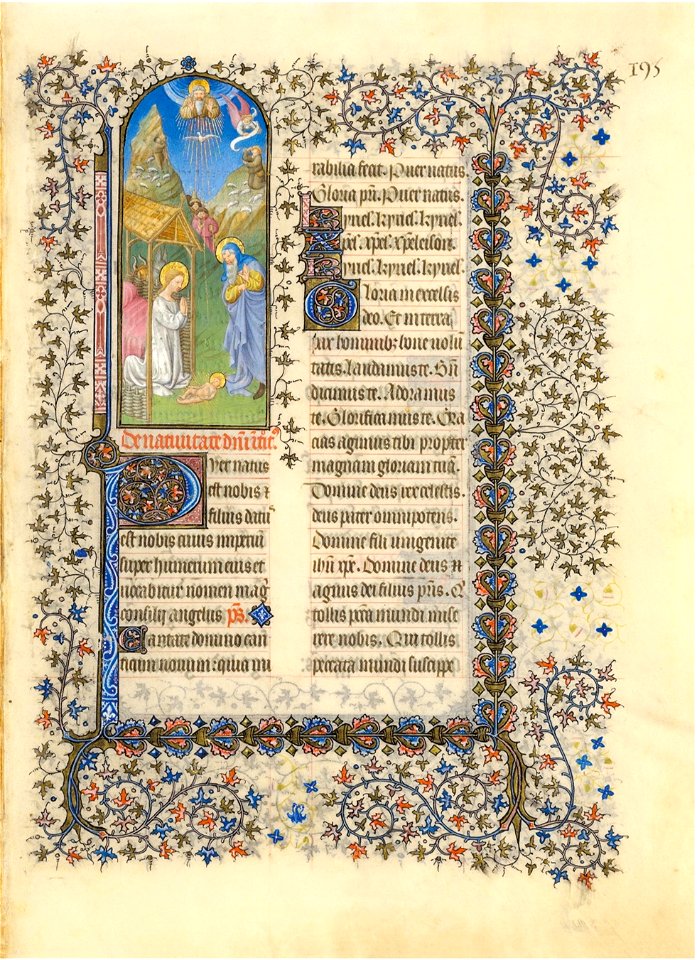 195
De natiuitate dñi ītroit⁹.
Puer natus
est nobis ⁊
filius datū
est nobis cuius imperiū
super humerum eius et
uocabitur nomen mag̃
consilij angelus. p̄s.
Cantate domino can
ticum nouum: quia mi
rabilia fecit. Puer natus.
Gloria pr̄i. Puer natus.
Kyriel. kyriel. kyriel.
Xpēl. xpēl. xpēleison.
Kyriel. kyriel. kyriel.
Gloria in excelsis
deo. Et in terra
pax hominibꝫ bone uolū
tatis. Laudamus te. Bn̄
dicimus te. Adoramus
te. Glorificamus te. Gra
cias agimus tibi propter
magnam gloriam tuā.
Domine deus rex celestis.
deus pater omnipotens.
Domine fili unigenite
ihū xp̄e. Domine deus
agnus dei filius pr̄is. Qͥ
tollis pctā mundi mise
rere nobis. Qui tollis
peccata mundi suscipe